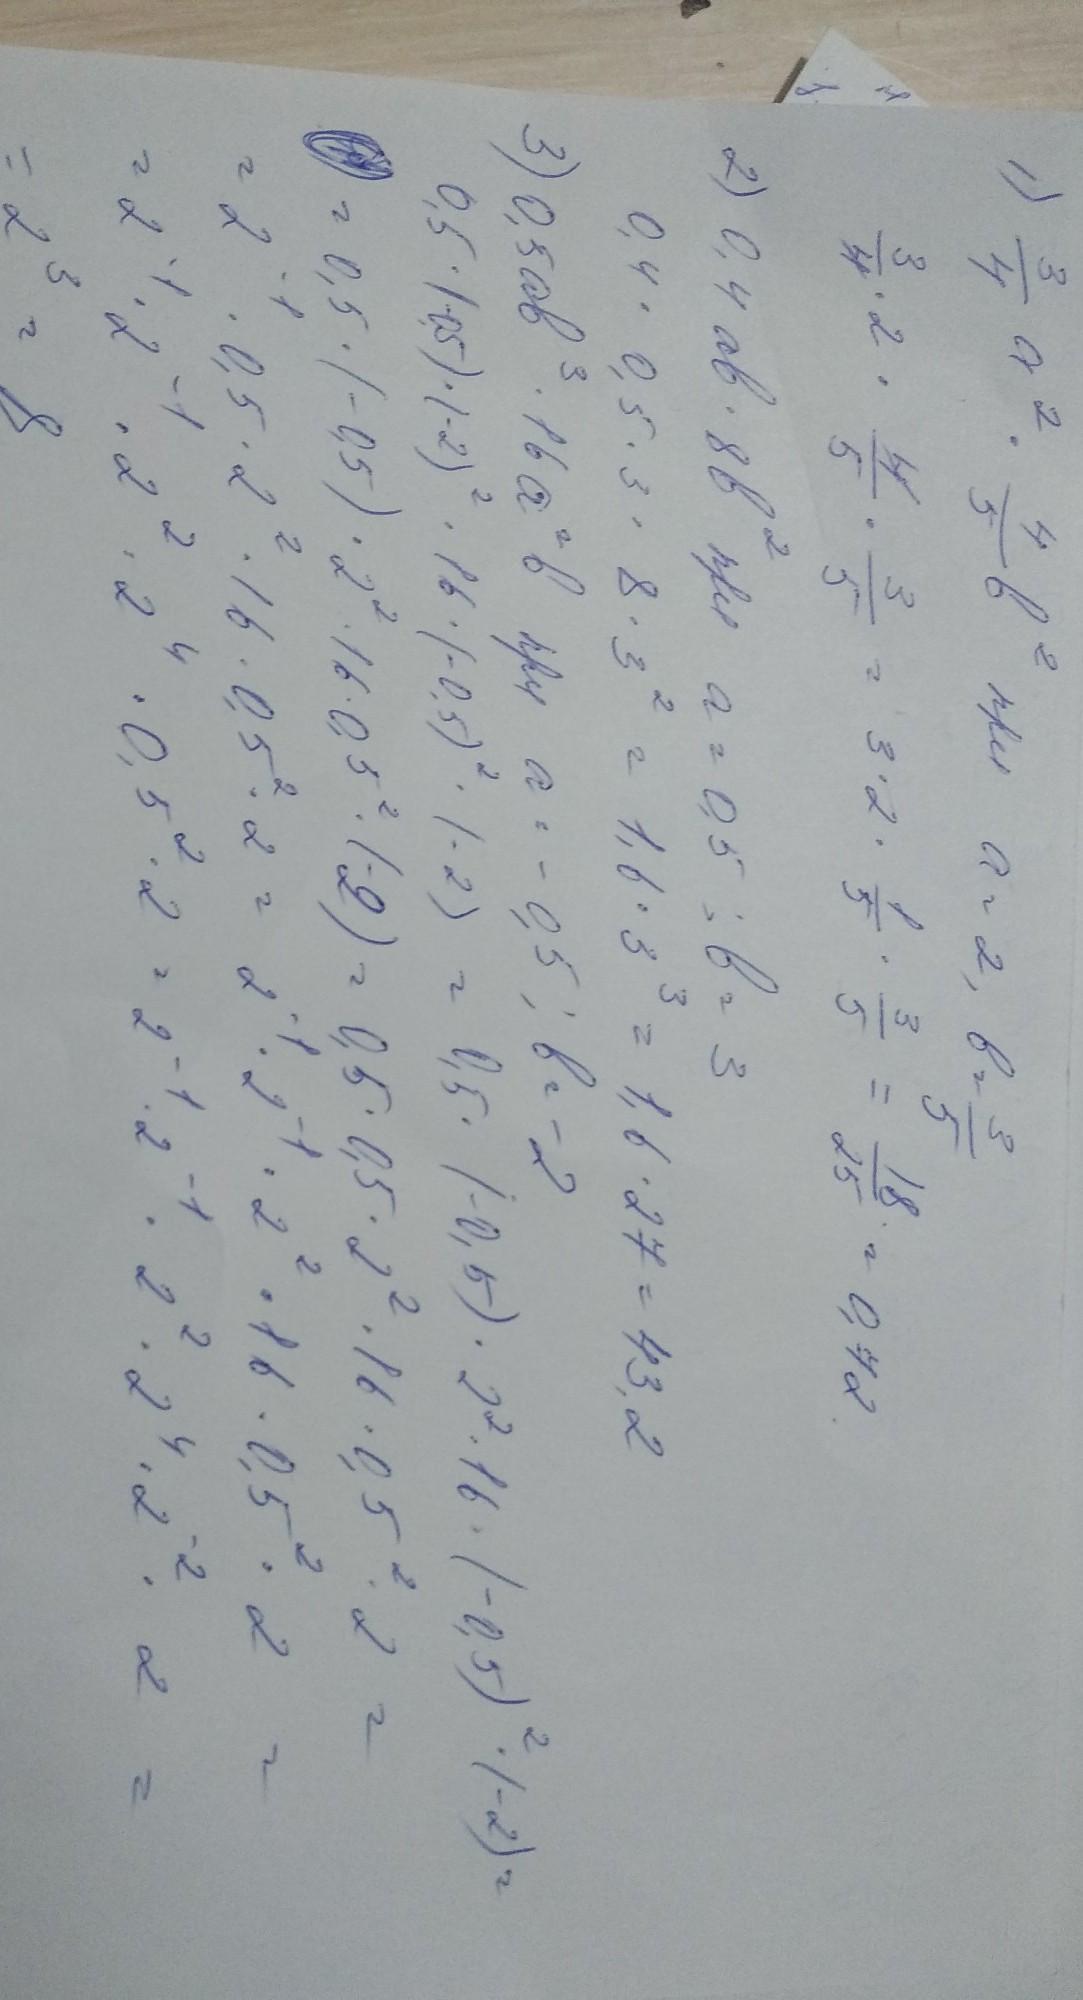 1) 3/4 a² · 4/5 b² при a = 2, b = 3/5
3/4 · 2 · 4/5 · 3/5 = 3 · 2 · 1/5 · 3/5 = 18/25 = 0,72
2) 0,4 ab · 8b² при a = 0,5 ; b = 3
0,4 · 0,5 · 3 · 8 · 3² = 1,6 · 3³ = 1,6 · 27 = 43,2
3) 0,5ab³ · 16a²b при a = -0,5 ; b = -2
0,5 · (-0,5) · (-2)² · 16 · (-0,5)² · (-2) = 0,5 · (-0,5) · 2² · 16 · (-0,5)² · (-2) =
= 0,5 · (-0,5) · 2² · 16 · 0,5² · (-2) = 0,5 · 0,5 · 2² · 16 · 0,5² · 2 =
= 2⁻¹ · 0,5 · 2² · 16 · 0,5² · 2 = 2⁻¹ · 2⁻¹ · 2² · 16 · 0,5² · 2 =
= 2⁻¹ · 2⁻¹ · 2² · 2⁴ · 0,5² · 2 = 2⁻¹ · 2⁻¹ · 2² · 2⁴ · 2⁻² · 2 =
= 2³ = 8